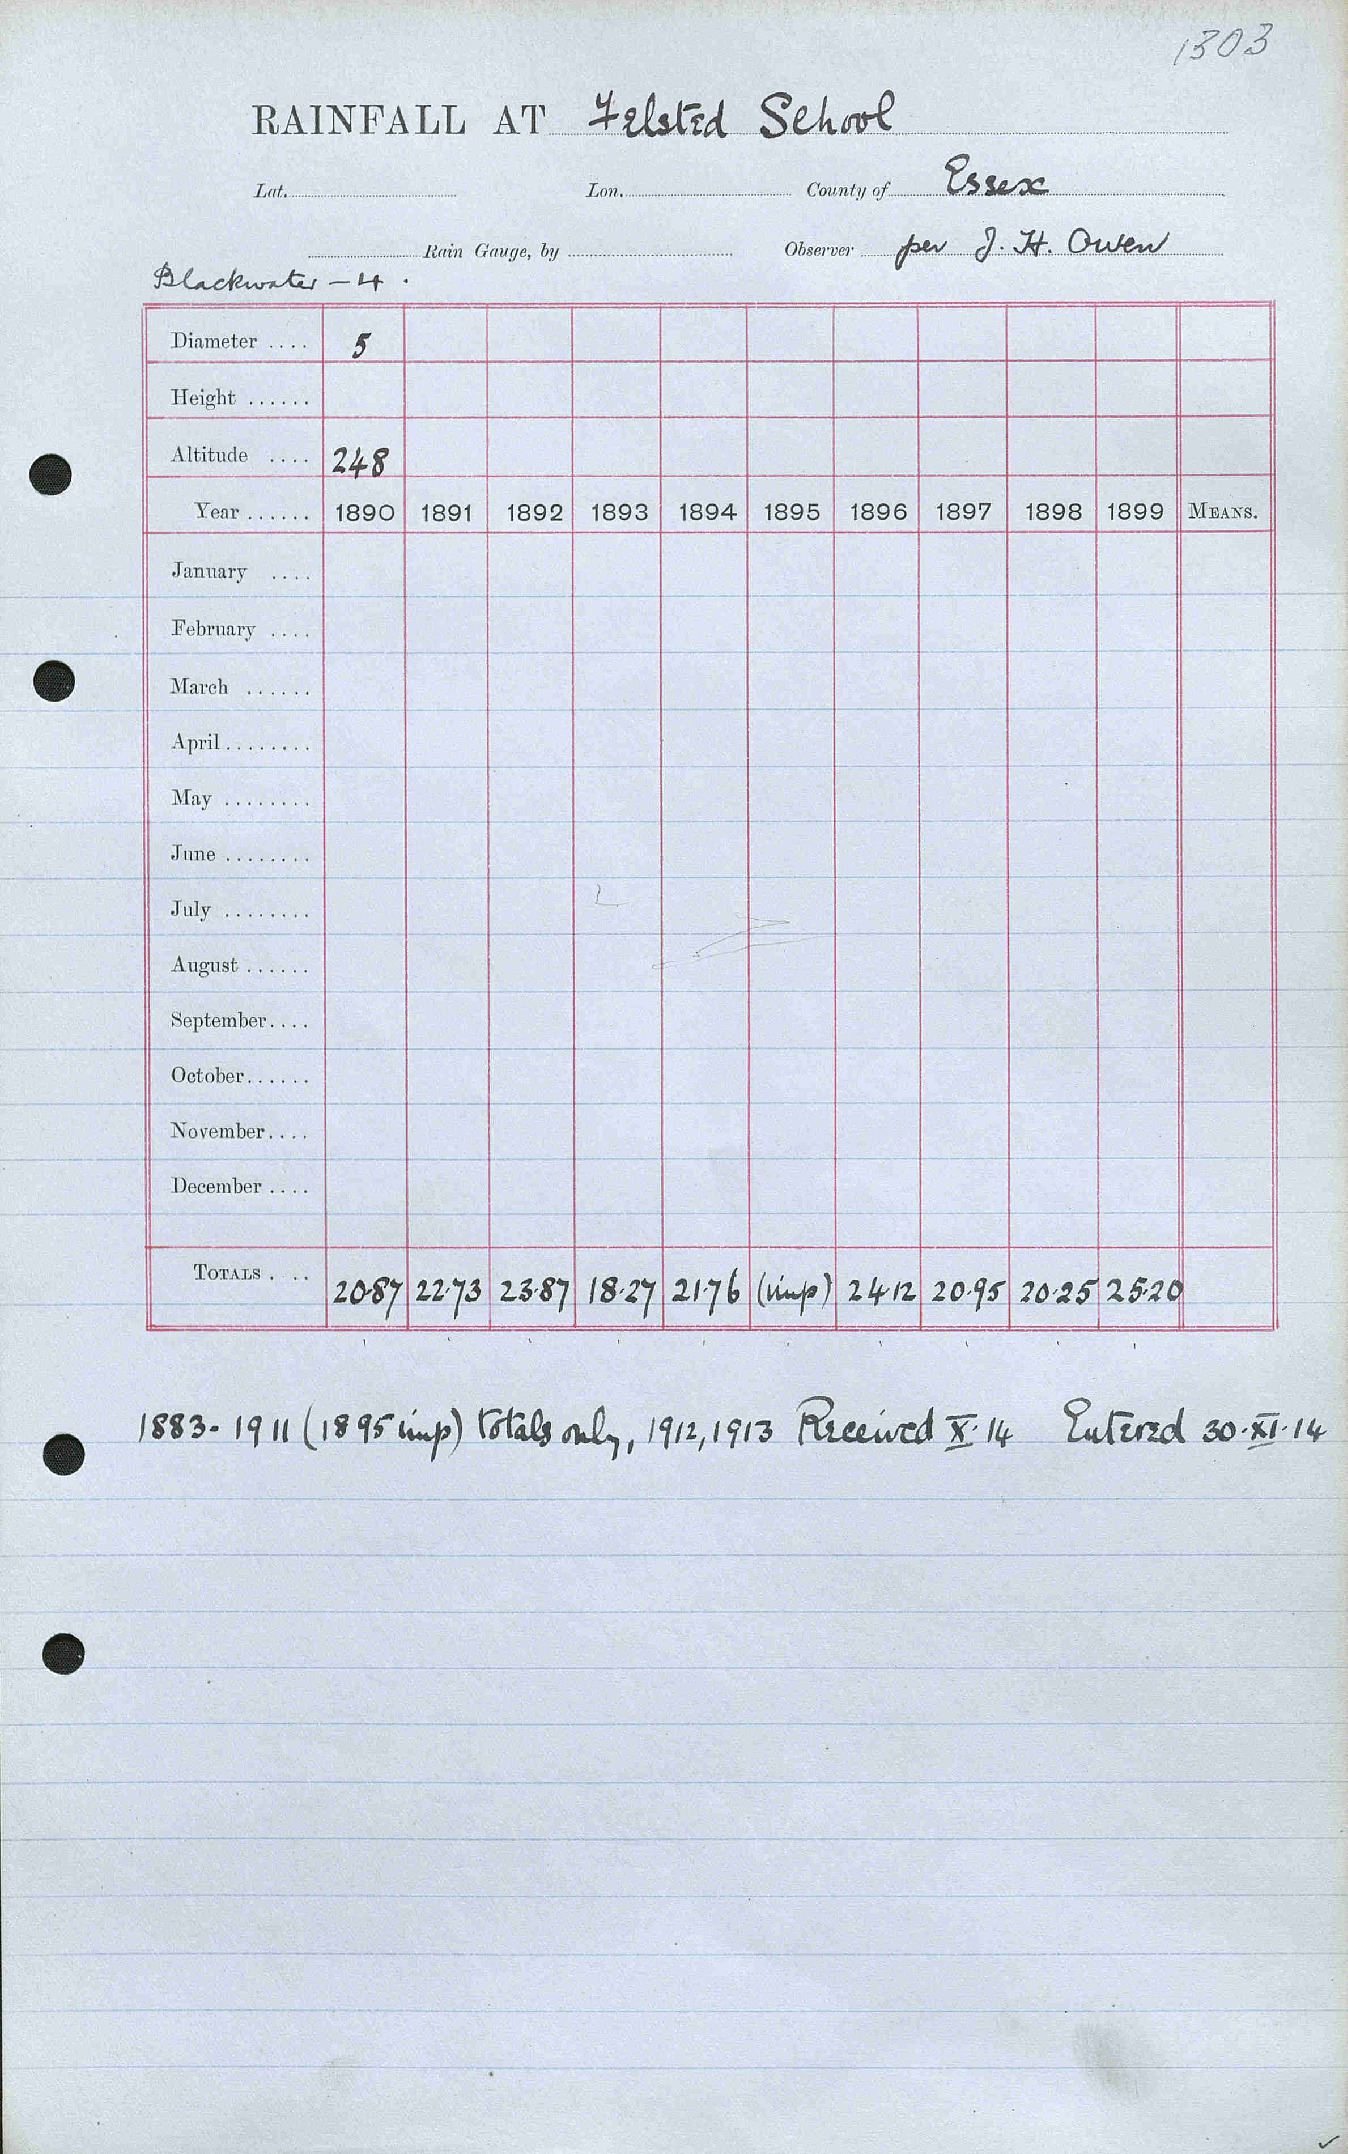 1303
RAINFALL AT Felsted School
Lat. Lon. County of Essex
Rain Gauge, by Observer per J. H. Owen
Blackwater – 4.
Diameter .... 5
Height ......
Altitude .... 248
Year ...... 1890 1891 1892 1893 1894 1895 1896 1897 1898 1899 MEANS.
January ....
February ....
March ......
April ........
May ........
June ........
July ........
August ......
September....
October......
November....
December ....
TOTALS . .. 20·87 22·73 23·87 18·27 21·76 (imp) 24·12 20·95 20·25 25·20
1883-1911 (1895 imp) totals only, 1912, 1913 Received X·14 Entered 30·XI·14